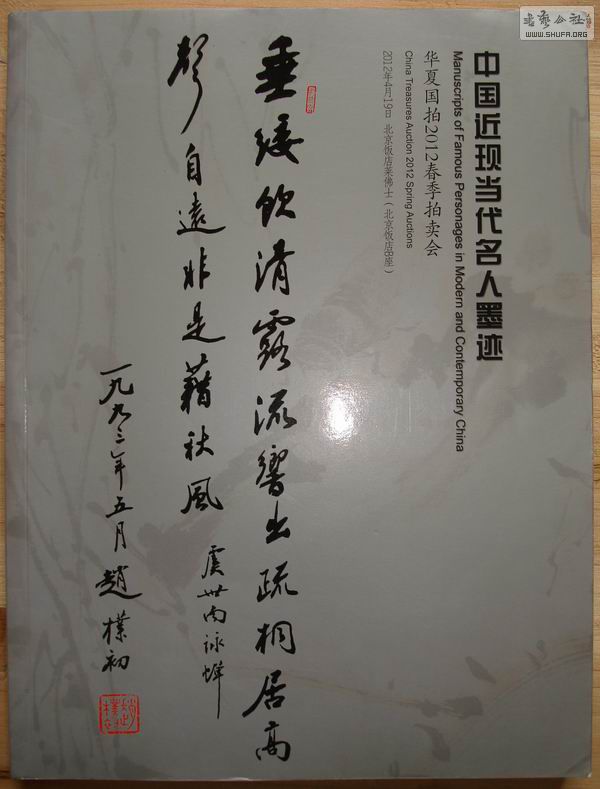 书艺公社
www.SHUFA.ORG
中国近现当代名人墨迹
Manuscripts of Famous Personages in Modern and Contemporary China
华夏国拍2012春季拍卖会
China Treasures Auction 2012 Spring Auctions
2012年4月19日 北京饭店莱佛士（北京饭店B座）
垂緌飲清露流響出疏桐居高
聲自遠非是藉秋風
虞世南詠蟬
一九九三年五月 趙樸初
趙樸初